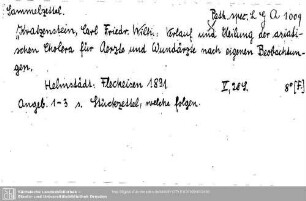 Sammelzettel. Path. spec. L. G A 1009
Kratzenstein, Carl Friedr. Wilh.: Verlauf und Heilung der asiati-
schen Cholera für Aerzte und Wundärzte nach eigenen Beobachtun-
gen.
Helmstädt: Fleckeisen 1831. V, 28 S. 8° [F.]
Angeb. 1-3 s. Stückzettel, welche folgen.
Sächsische Landesbibliothek -
Staats- und Universitätsbibliothek Dresden